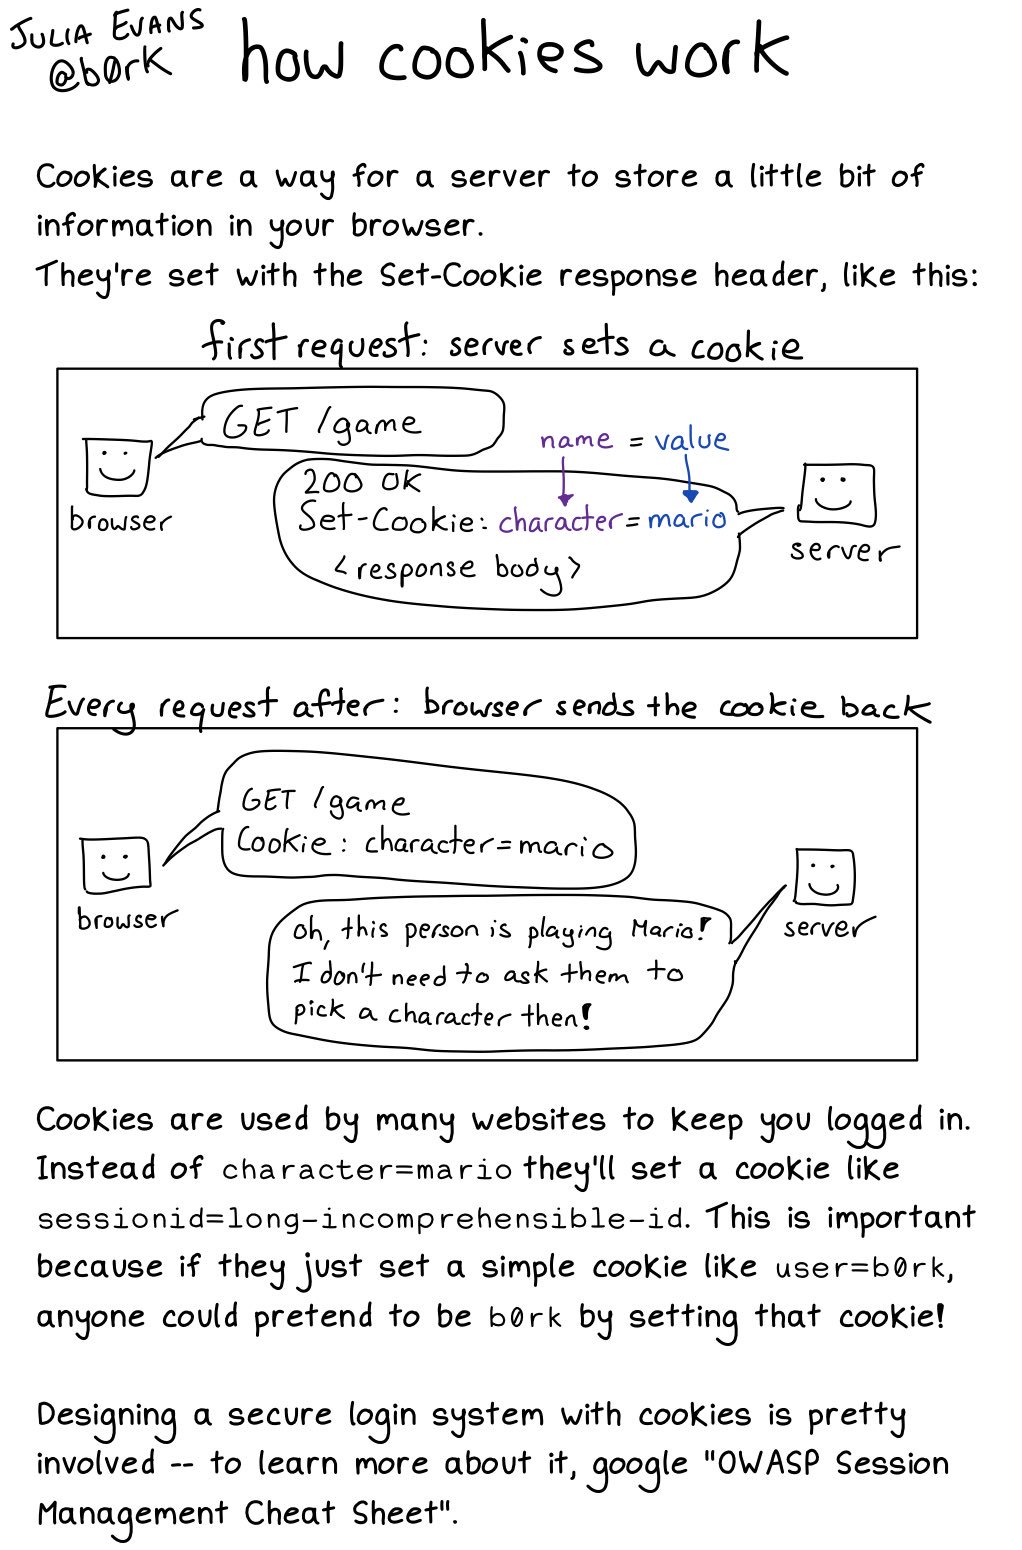 JULIA EVANS
@b0rk
how cookies work
Cookies are a way for a server to store a little bit of
information in your browser.
They're set with the Set-Cookie response header, like this:
first request: server sets a cookie
GET /game
name = value
browser
200 OK
Set-Cookie: character=mario
<response body>
server
Every request after: browser sends the cookie back
GET /game
Cookie: character=mario
browser
oh, this person is playing Mario!
I don't need to ask them to
pick a character then!
server
Cookies are used by many websites to keep you logged in.
Instead of character=mario they'll set a cookie like
sessionid=long-incomprehensible-id. This is important
because if they just set a simple cookie like user=b0rk,
anyone could pretend to be b0rk by setting that cookie!
Designing a secure login system with cookies is pretty
involved -- to learn more about it, google "OWASP Session
Management Cheat Sheet".